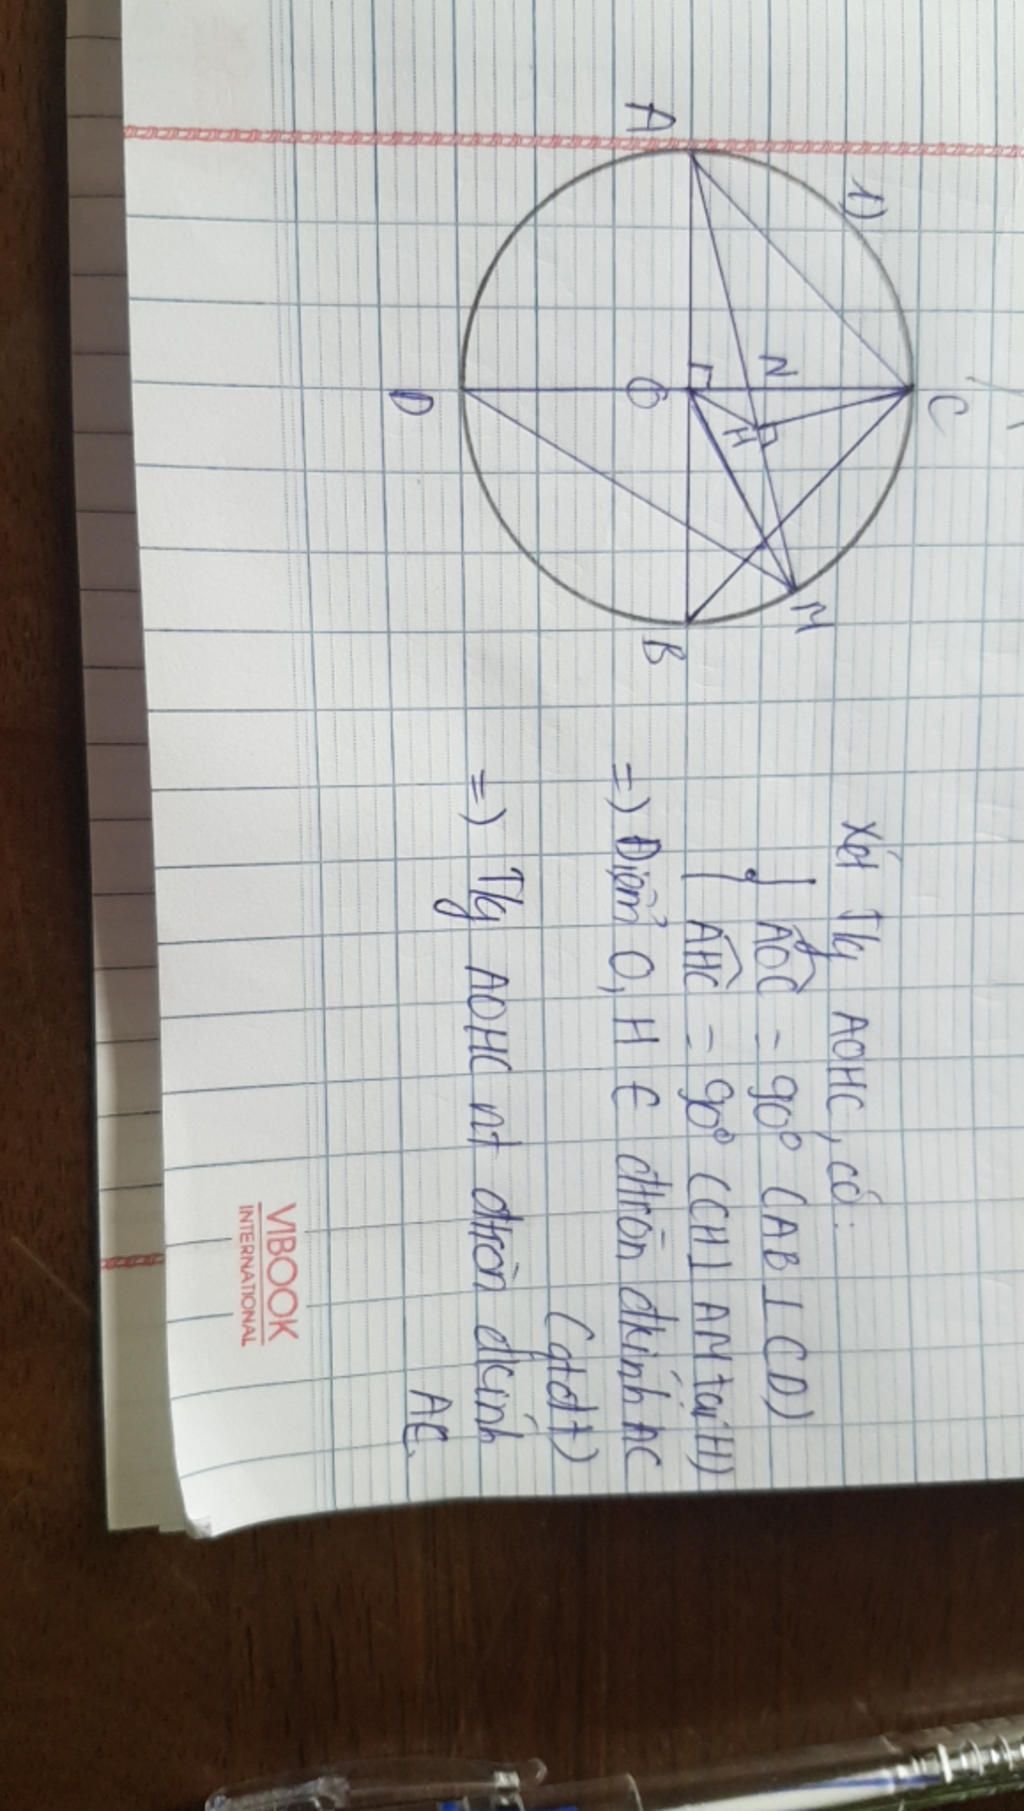 1)
C
A
N
M
H
O
B
D
Xét Tlg AOHC, có:
AOC = 90° (AB ⊥ CD)
AHC = 90° (CH ⊥ AM tại H)
=) Điểm O, H ∈ đtròn đkính AC
(qtđt)
=) Tlg AOHC nt đtròn đkính
AC.
VIBOOK
INTERNATIONAL